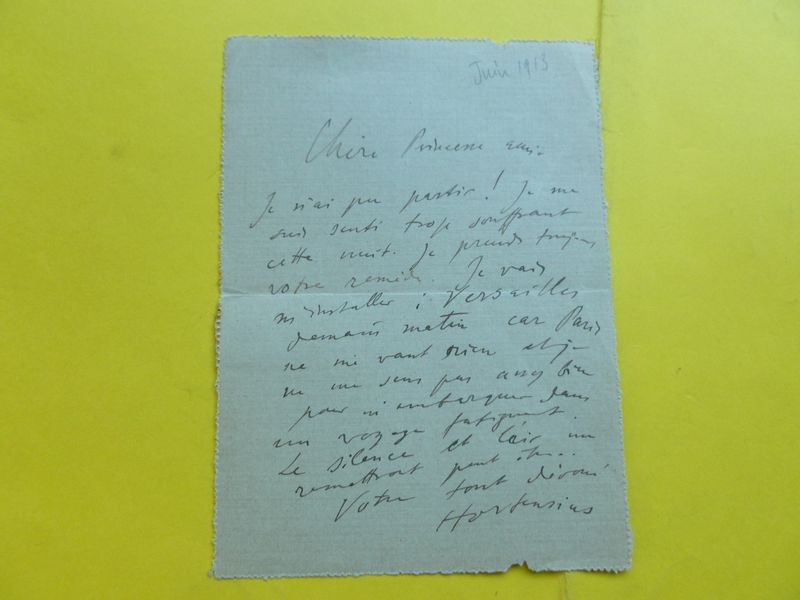 Juin 1913
Chère Princesse amie.
Je n'ai pu partir ! Je me
suis senti trop souffrant
cette nuit. Je prends toujours
votre remède. Je vais
m'installer à Versailles
demain matin car Paris
ne me vaut rien et je
ne me sens pas assez bien
pour m'embarquer dans
un voyage fatiguant.
Le silence et l'air me
remettront peut être..
Votre tout dévoué
Hortensius